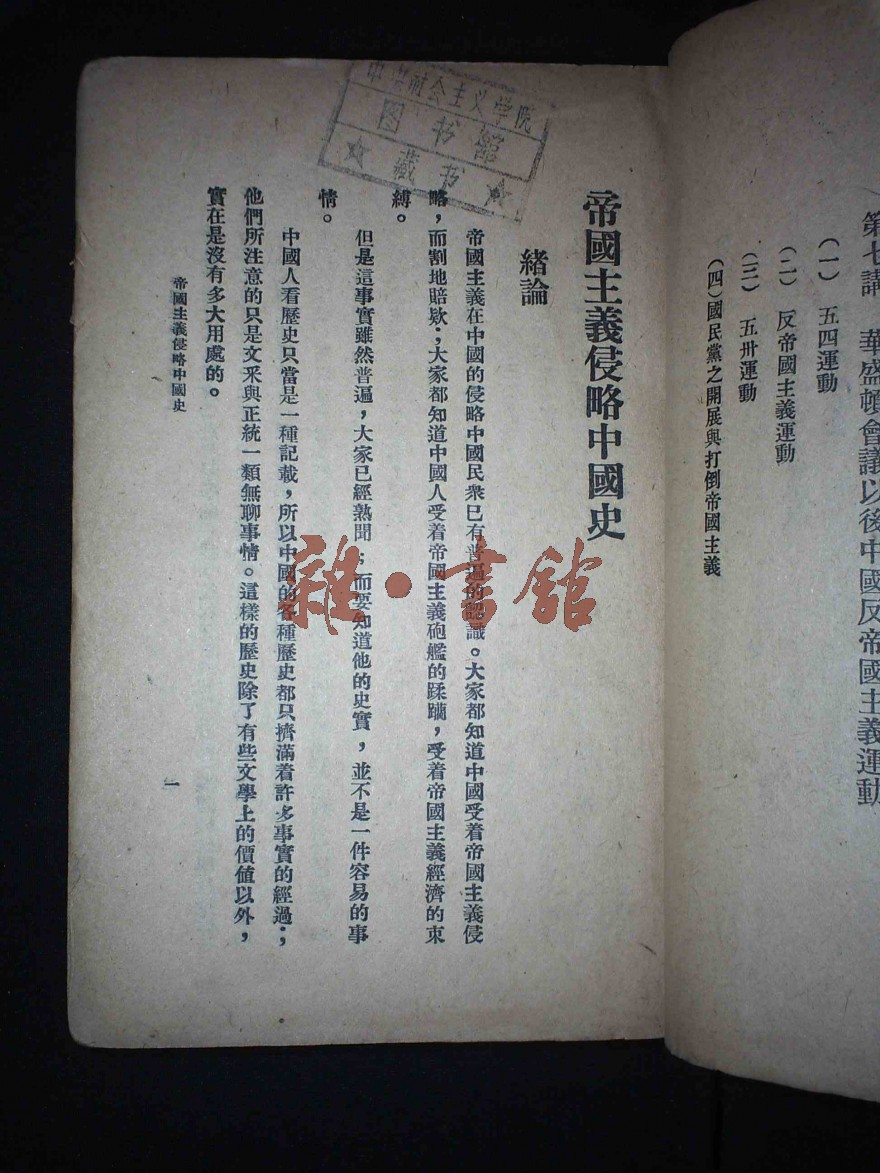 第七講　華盛頓會議以後中國反帝國主義運動
（一）五四運動
（二）反帝國主義運動
（三）五卅運動
（四）國民黨之開展與打倒帝國主義
中央社会主义学院
图书馆
☆藏书☆
帝國主義侵略中國史
緒論
帝國主義在中國的侵略中國民衆已有普遍的認識。大家都知道中國受着帝國主義侵
略，而割地賠欵；大家都知道中國人受着帝國主義砲艦的蹂躪，受着帝國主義經濟的束
縛。
但是這事實雖然普遍，大家已經熟聞；而要知道他的史實，並不是一件容易的事
情。
中國人看歷史只當是一種記載，所以中國的各種歷史都只擠滿着許多事實的經過；
他們所注意的只是文采與正統一類無聊事情。這樣的歷史除了有些文學上的價值以外，
實在是沒有多大用處的。
帝國主義侵略中國史
一
雜·書館